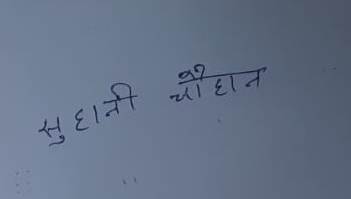 सुहानी चौहान